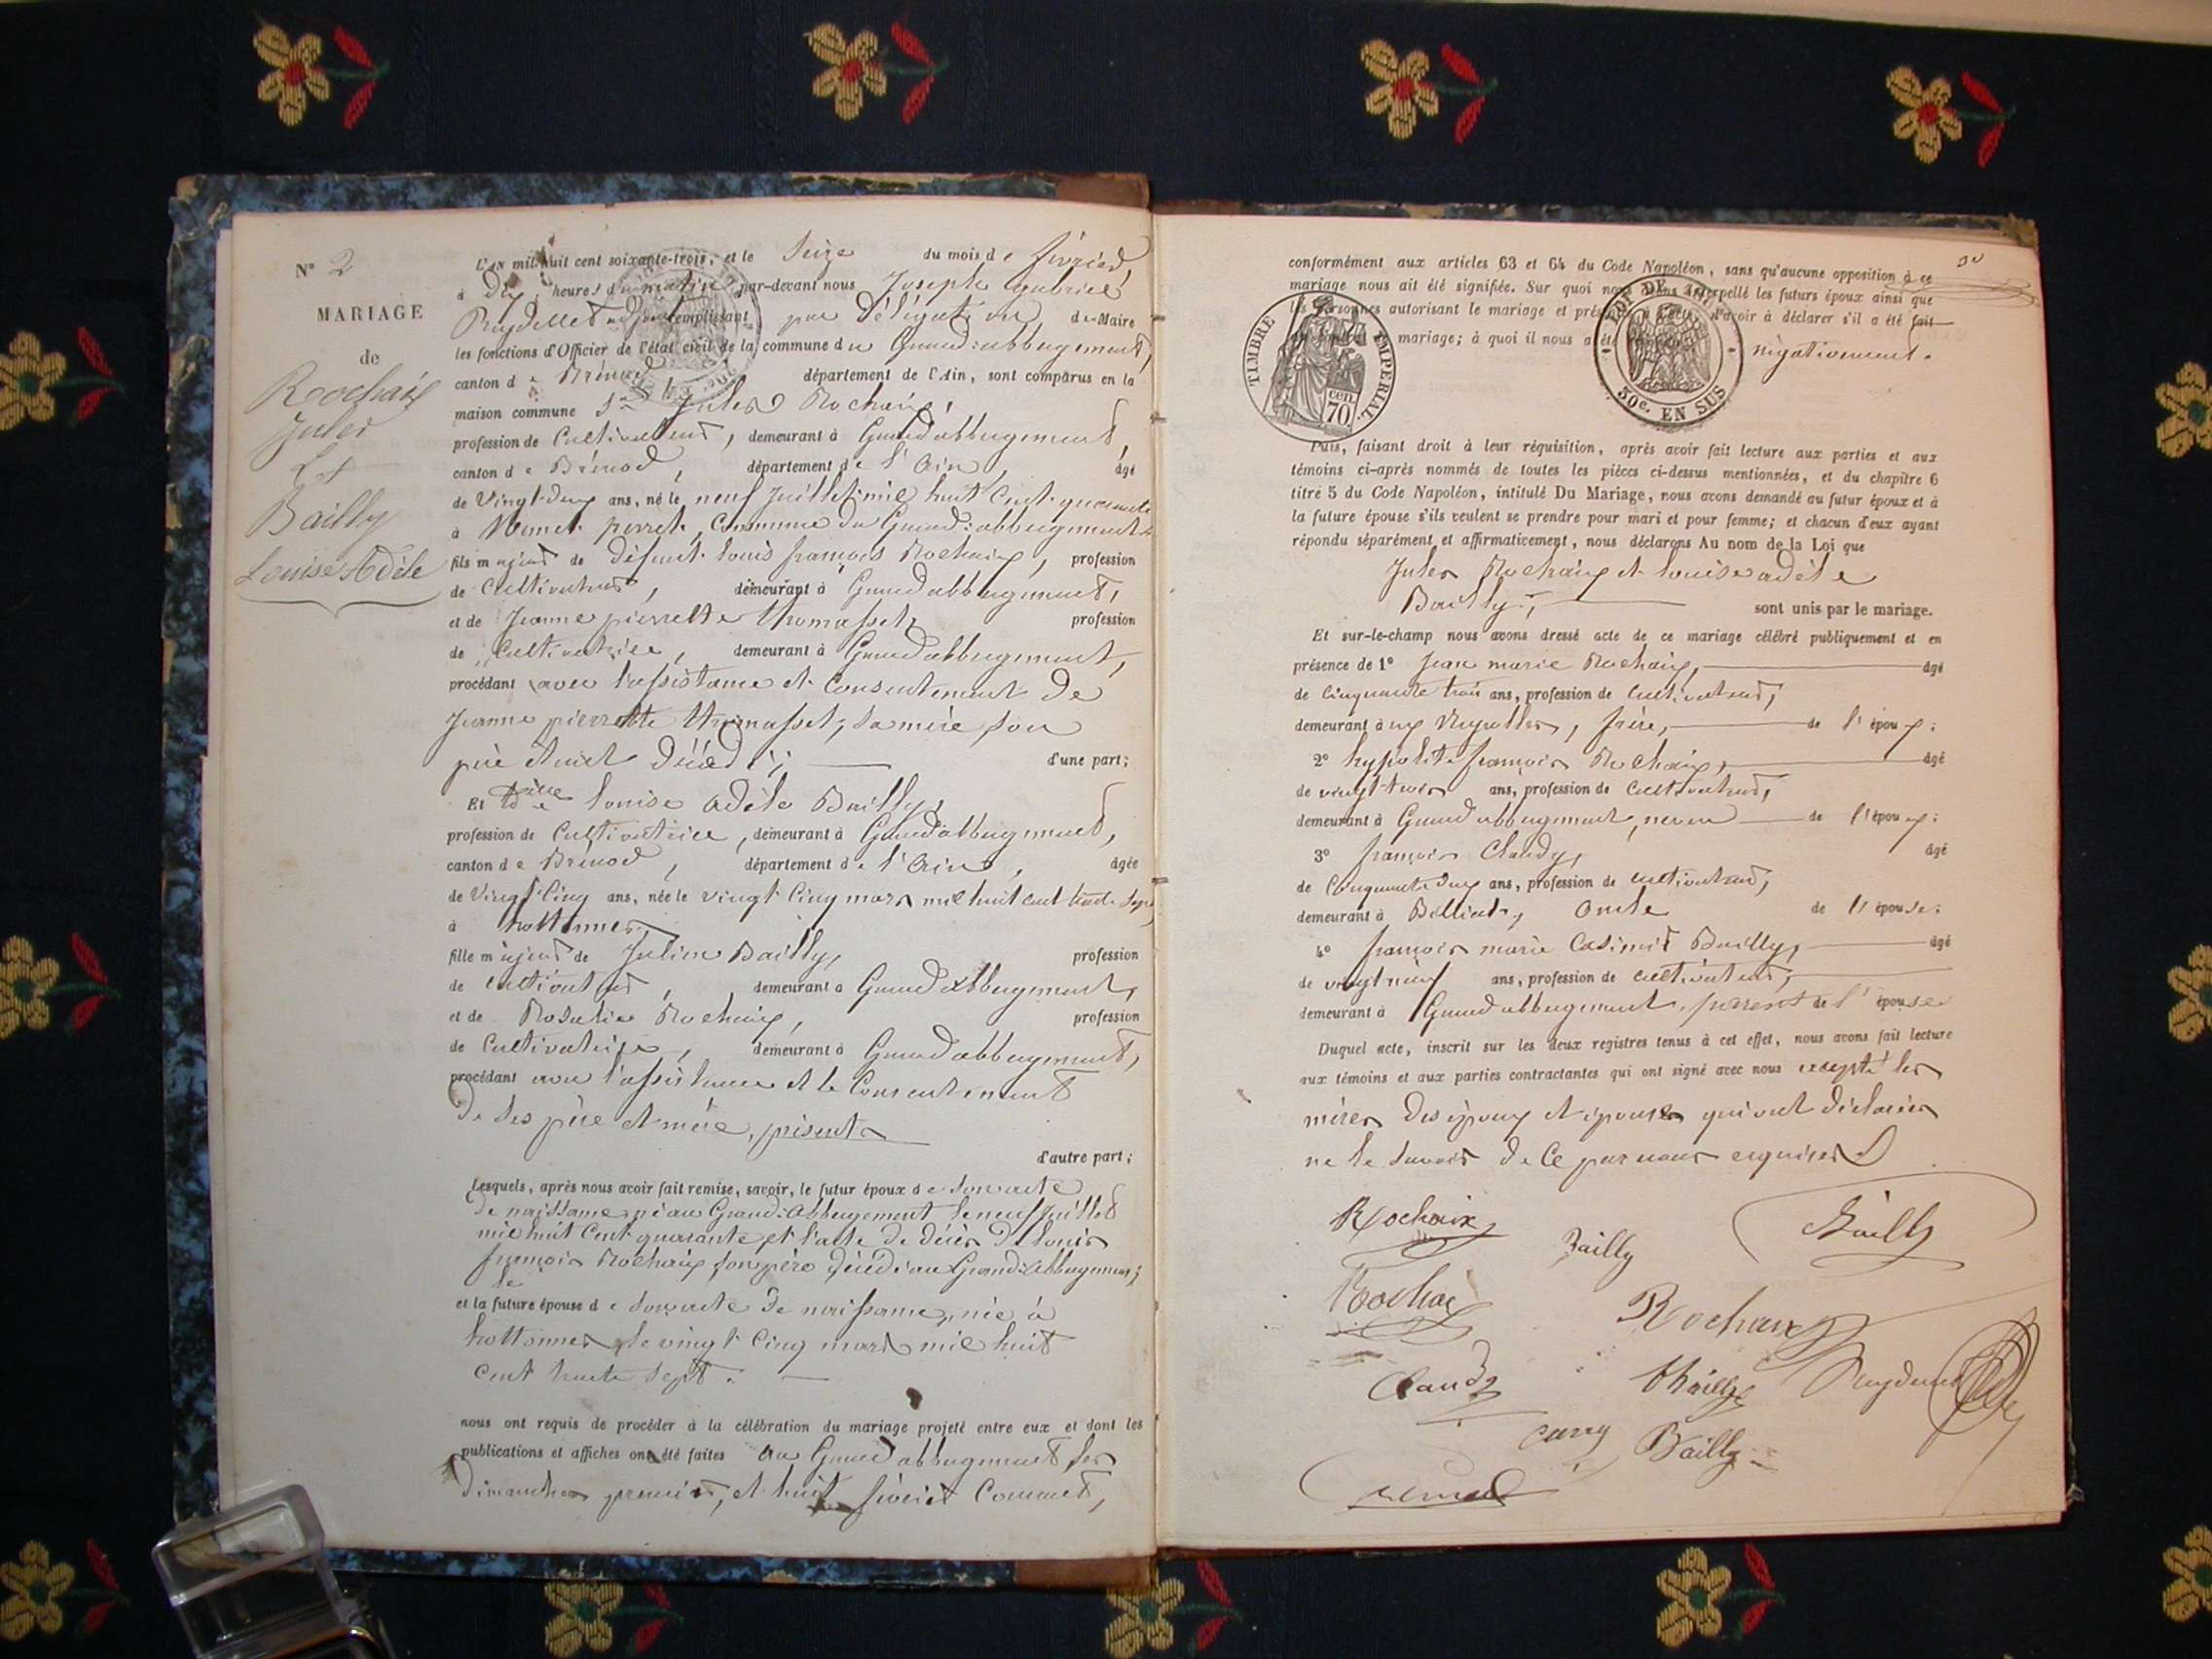 N° 2
MARIAGE
de
Rochaix
Jules
Et
Bailly
Louise Adèle
L'an mil huit cent soixante-trois, et le Seize du mois de février,
à dix heures du matin, par-devant nous Joseph Gabriel
Puydellet adjoint remplissant par délégation du Maire
les fonctions d'Officier de l'état civil de la commune du Grand-abbergement,
canton de Brénod département de l'Ain, sont comparus en la
maison commune Sr Jules Rochaix,
profession de Cultivateur, demeurant à Grand abbergement,
canton de Brénod, département de l'Ain, âgé
de Vingt-deux ans, né le neuf Juillet mil huit Cent quarante
à commune du Grand-abbergement
fils majeur de défunt Louis françois Rochaix, profession
de Cultivateur, demeurant à Grand abbergement,
et de Jeanne pierrette thomasset, profession
de Cultivatrice, demeurant à Grand abbergement,
procédant avec l'assistance et Consentement de
Jeanne pierrette thomasset, sa mère son
père étant décédé; d'une part;
Et Delle Louise adèle Bailly,
profession de Cultivatrice, demeurant à Grand abbergement,
canton de Brénod, département de l'Ain, âgée
de Vingt Cinq ans, née le vingt Cinq mars mil huit cent trente sept,
à hottonnes,
fille majeure de Julien Bailly, profession
de cultivateur, demeurant à Grand abbergement,
et de Rosalie Rochaix, profession
de Cultivatrice, demeurant à Grand abbergement,
procédant avec l'assistance et le Consentement
de ses père et mère, présents
d'autre part;
Lesquels, après nous avoir fait remise, savoir, le futur époux de son acte
de naissance, né au Grand-Abbergement le neuf Juillet
mil huit Cent quarante et l'acte de décès de Louis
françois Rochaix son père décédé au Grand-Abbergement;
le
et la future épouse de son acte de naissance, née à
hottonnes, le vingt Cinq mars mil huit
cent trente sept.
nous ont requis de procéder à la célébration du mariage projeté entre eux et dont les
publications et affiches ont été faites au Grand abbergement les
dimanches premier, et huit février Courant,
conformément aux articles 63 et 64 du Code Napoléon, sans qu'aucune opposition à ce
mariage nous ait été signifiée. Sur quoi nous avons interpellé les futurs époux ainsi que
les personnes autorisant le mariage et présentes à l'acte, d'avoir à déclarer s'il a été fait
mariage; à quoi il nous a été négativement.
TIMBRE IMPÉRIAL
cen. 70
30c. EN SUS
Puis, faisant droit à leur réquisition, après avoir fait lecture aux parties et aux
témoins ci-après nommés de toutes les pièces ci-dessus mentionnées, et du chapitre 6
titre 5 du Code Napoléon, intitulé Du Mariage, nous avons demandé au futur époux et à
la future épouse s'ils veulent se prendre pour mari et pour femme; et chacun d'eux ayant
répondu séparément et affirmativement, nous déclarons Au nom de la Loi que
Jules Rochaix et Louise adèle
Bailly, sont unis par le mariage.
Et sur-le-champ nous avons dressé acte de ce mariage célébré publiquement et en
présence de 1° Jean marie Rochaix, âgé
de Cinquante trois ans, profession de Cultivateur,
demeurant à , frère, de l'époux;
2° hypolite françois Rochaix, âgé
de vingt trois ans, profession de Cultivateur,
demeurant à Grand abbergement, neveu de l'époux;
3° françois Claudy, âgé
de Cinquante deux ans, profession de cultivateur,
demeurant à Billiat, Oncle de l'épouse;
4° françois marie Casimir Bailly, âgé
de vingt neuf ans, profession de cultivateur,
demeurant à Grand abbergement, parent de l'épouse
Duquel acte, inscrit sur les deux registres tenus à cet effet, nous avons fait lecture
aux témoins et aux parties contractantes qui ont signé avec nous excepté les
mères des époux et épouse qui ont déclarées
ne le savoir de Ce par nous requises
Rochaix Bailly Bailly
Rochaix
Claudy
Bailly